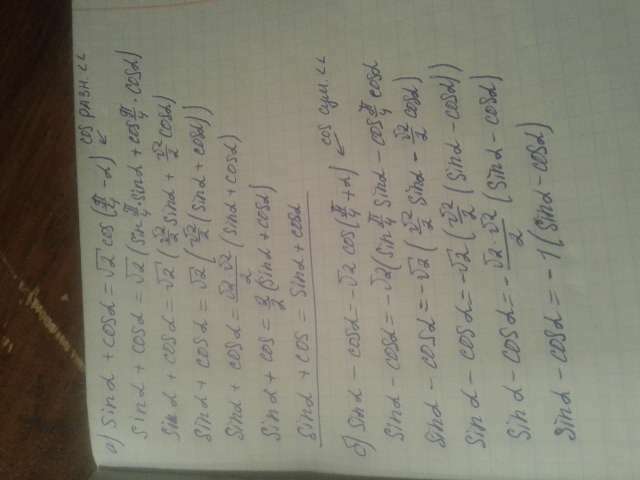 cos разн. LL
а) sinα + cosα = √2 cos(π/4 - α)
sinα + cosα = √2 (sin π/4 · sinα + cos π/4 · cosα)
sinα + cosα = √2 (√2/2 sinα + √2/2 cosα)
sinα + cosα = √2 (√2/2 (sinα + cosα))
sinα + cosα = √2·√2/2 (sinα + cosα)
sinα + cos = 2/2 (sinα + cosα)
sinα + cos = sinα + cosα
cos сум. LL
б) sinα - cosα = -√2 cos(π/4 + α)
sinα - cosα = -√2 (sin π/4 sinα - cos π/4 cosα
sinα - cosα = -√2 (√2/2 sinα - √2/2 cosα)
sinα - cosα = -√2 (√2/2 (sinα - cosα))
sinα - cosα = - √2·√2/2 (sinα - cosα)
sinα - cosα = -1 (sinα - cosα)